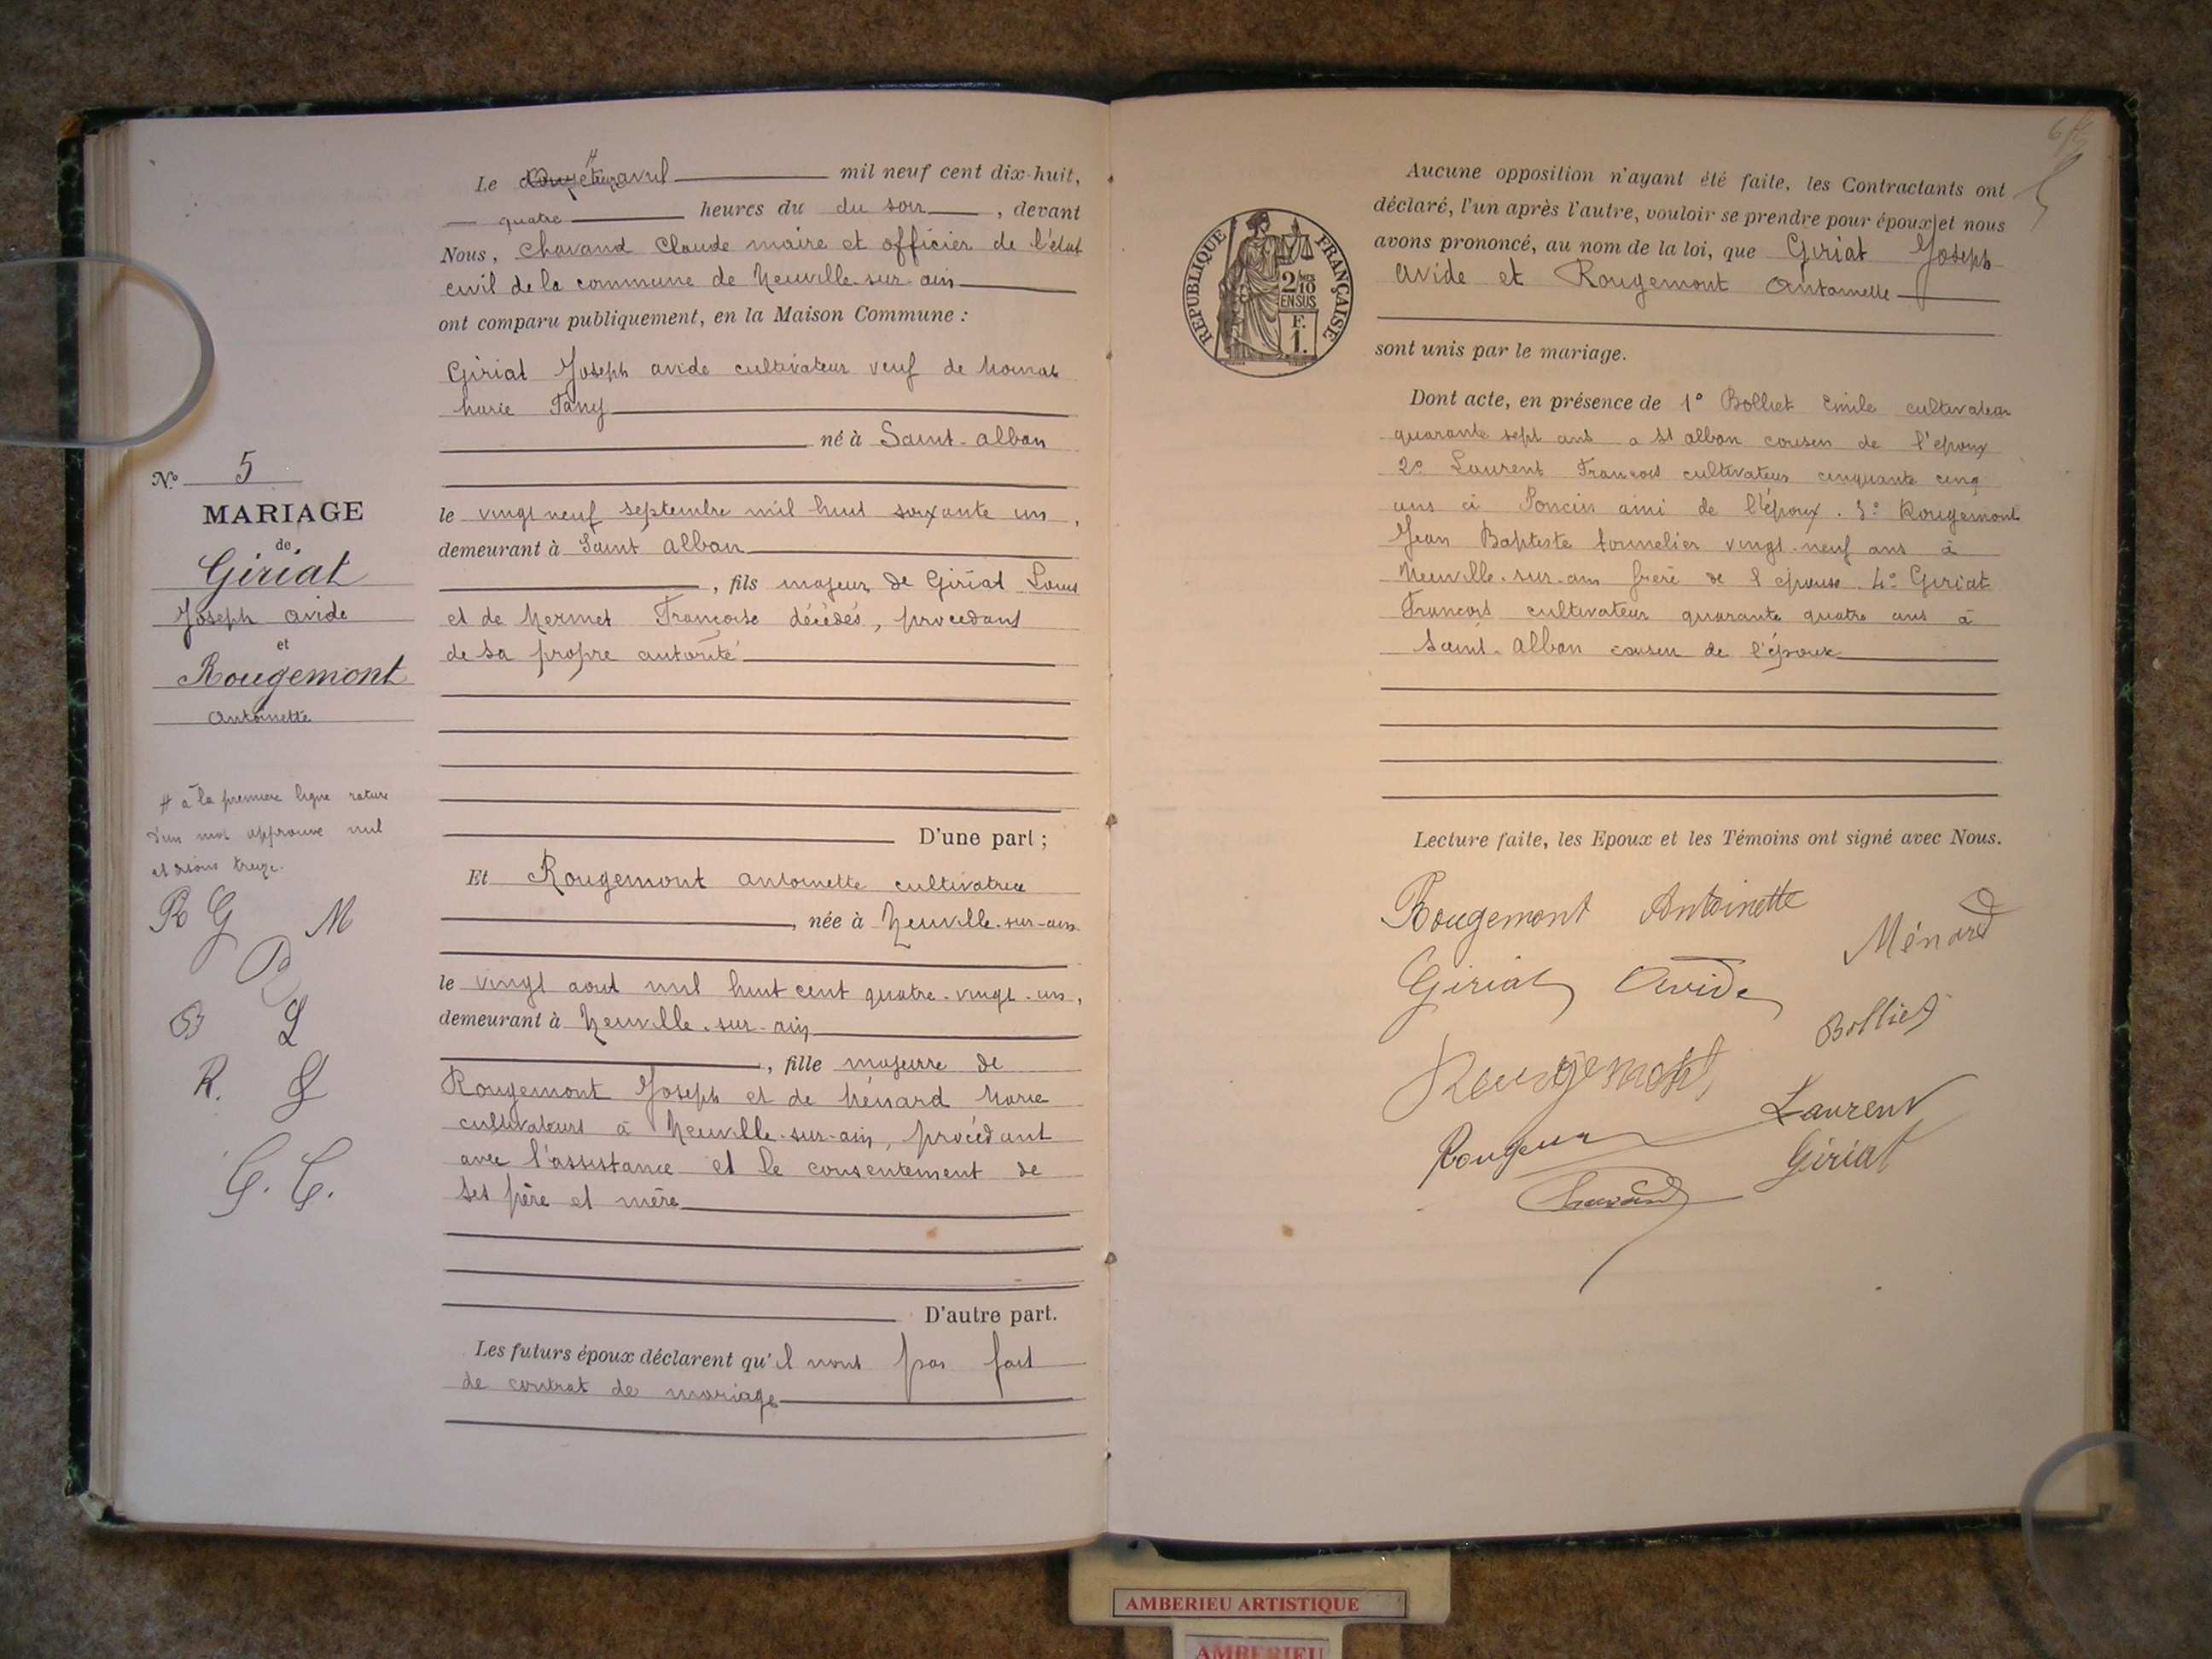 Le treize avril mil neuf cent dix-huit,
quatre heures du du soir, devant
Nous, Chavand Claude maire et officier de l'état
civil de la commune de Neuville-sur-ain
ont comparu publiquement, en la Maison Commune :
Giriat Joseph avide cultivateur veuf de
Marie Fany
né à Saint-alban
le vingt neuf septembre mil huit soixante un,
demeurant à Saint Alban
, fils majeur de Giriat Louis
et de Mermet Françoise décédés, procédant
de sa propre autorité
D'une part ;
Et Rougemont antoinette cultivatrice
, née à Neuville-sur-ain
le vingt aout mil huit cent quatre-vingt-un,
demeurant à Neuville-sur-ain
, fille majeure de
Rougemont Joseph et de Ménard Marie
cultivateurs à Neuville-sur-ain, procédant
avec l'assistance et le consentement de
ses père et mère
D'autre part.
Les futurs époux déclarent qu'il nont pas fait
de contrat de mariage
No 5
MARIAGE
de
Giriat
Joseph avide
et
Rougemont
Antoinette
# à la première ligne rature
d'un mot approuvé nul
et disons treize.
R G M
R
B L
R. G
C. C.
RÉPUBLIQUE FRANÇAISE
2/10 EN SUS
F. 1.
Aucune opposition n'ayant été faite, les Contractants ont
déclaré, l'un après l'autre, vouloir se prendre pour époux et nous
avons prononcé, au nom de la loi, que Giriat Joseph
avide et Rougemont Antoinette
sont unis par le mariage.
Dont acte, en présence de 1° Bolliet Emile cultivateur
quarante sept ans a St alban cousin de l'epoux
2° Laurent François cultivateur cinquante cinq
ans à Poncin ami de l'époux. 3° Rougemont
Jean Baptiste tonnelier vingt-neuf ans à
Neuville-sur-ain frère de l'epouse. 4° Giriat
François cultivateur quarante quatre ans à
Saint-Alban cousin de l'époux
Lecture faite, les Epoux et les Témoins ont signé avec Nous.
Rougemont Antoinette
Ménard
Giriat Avide
Bolliet
Rougemont
Laurent
Giriat
Chavand
AMBERIEU ARTISTIQUE
AMBERIEU